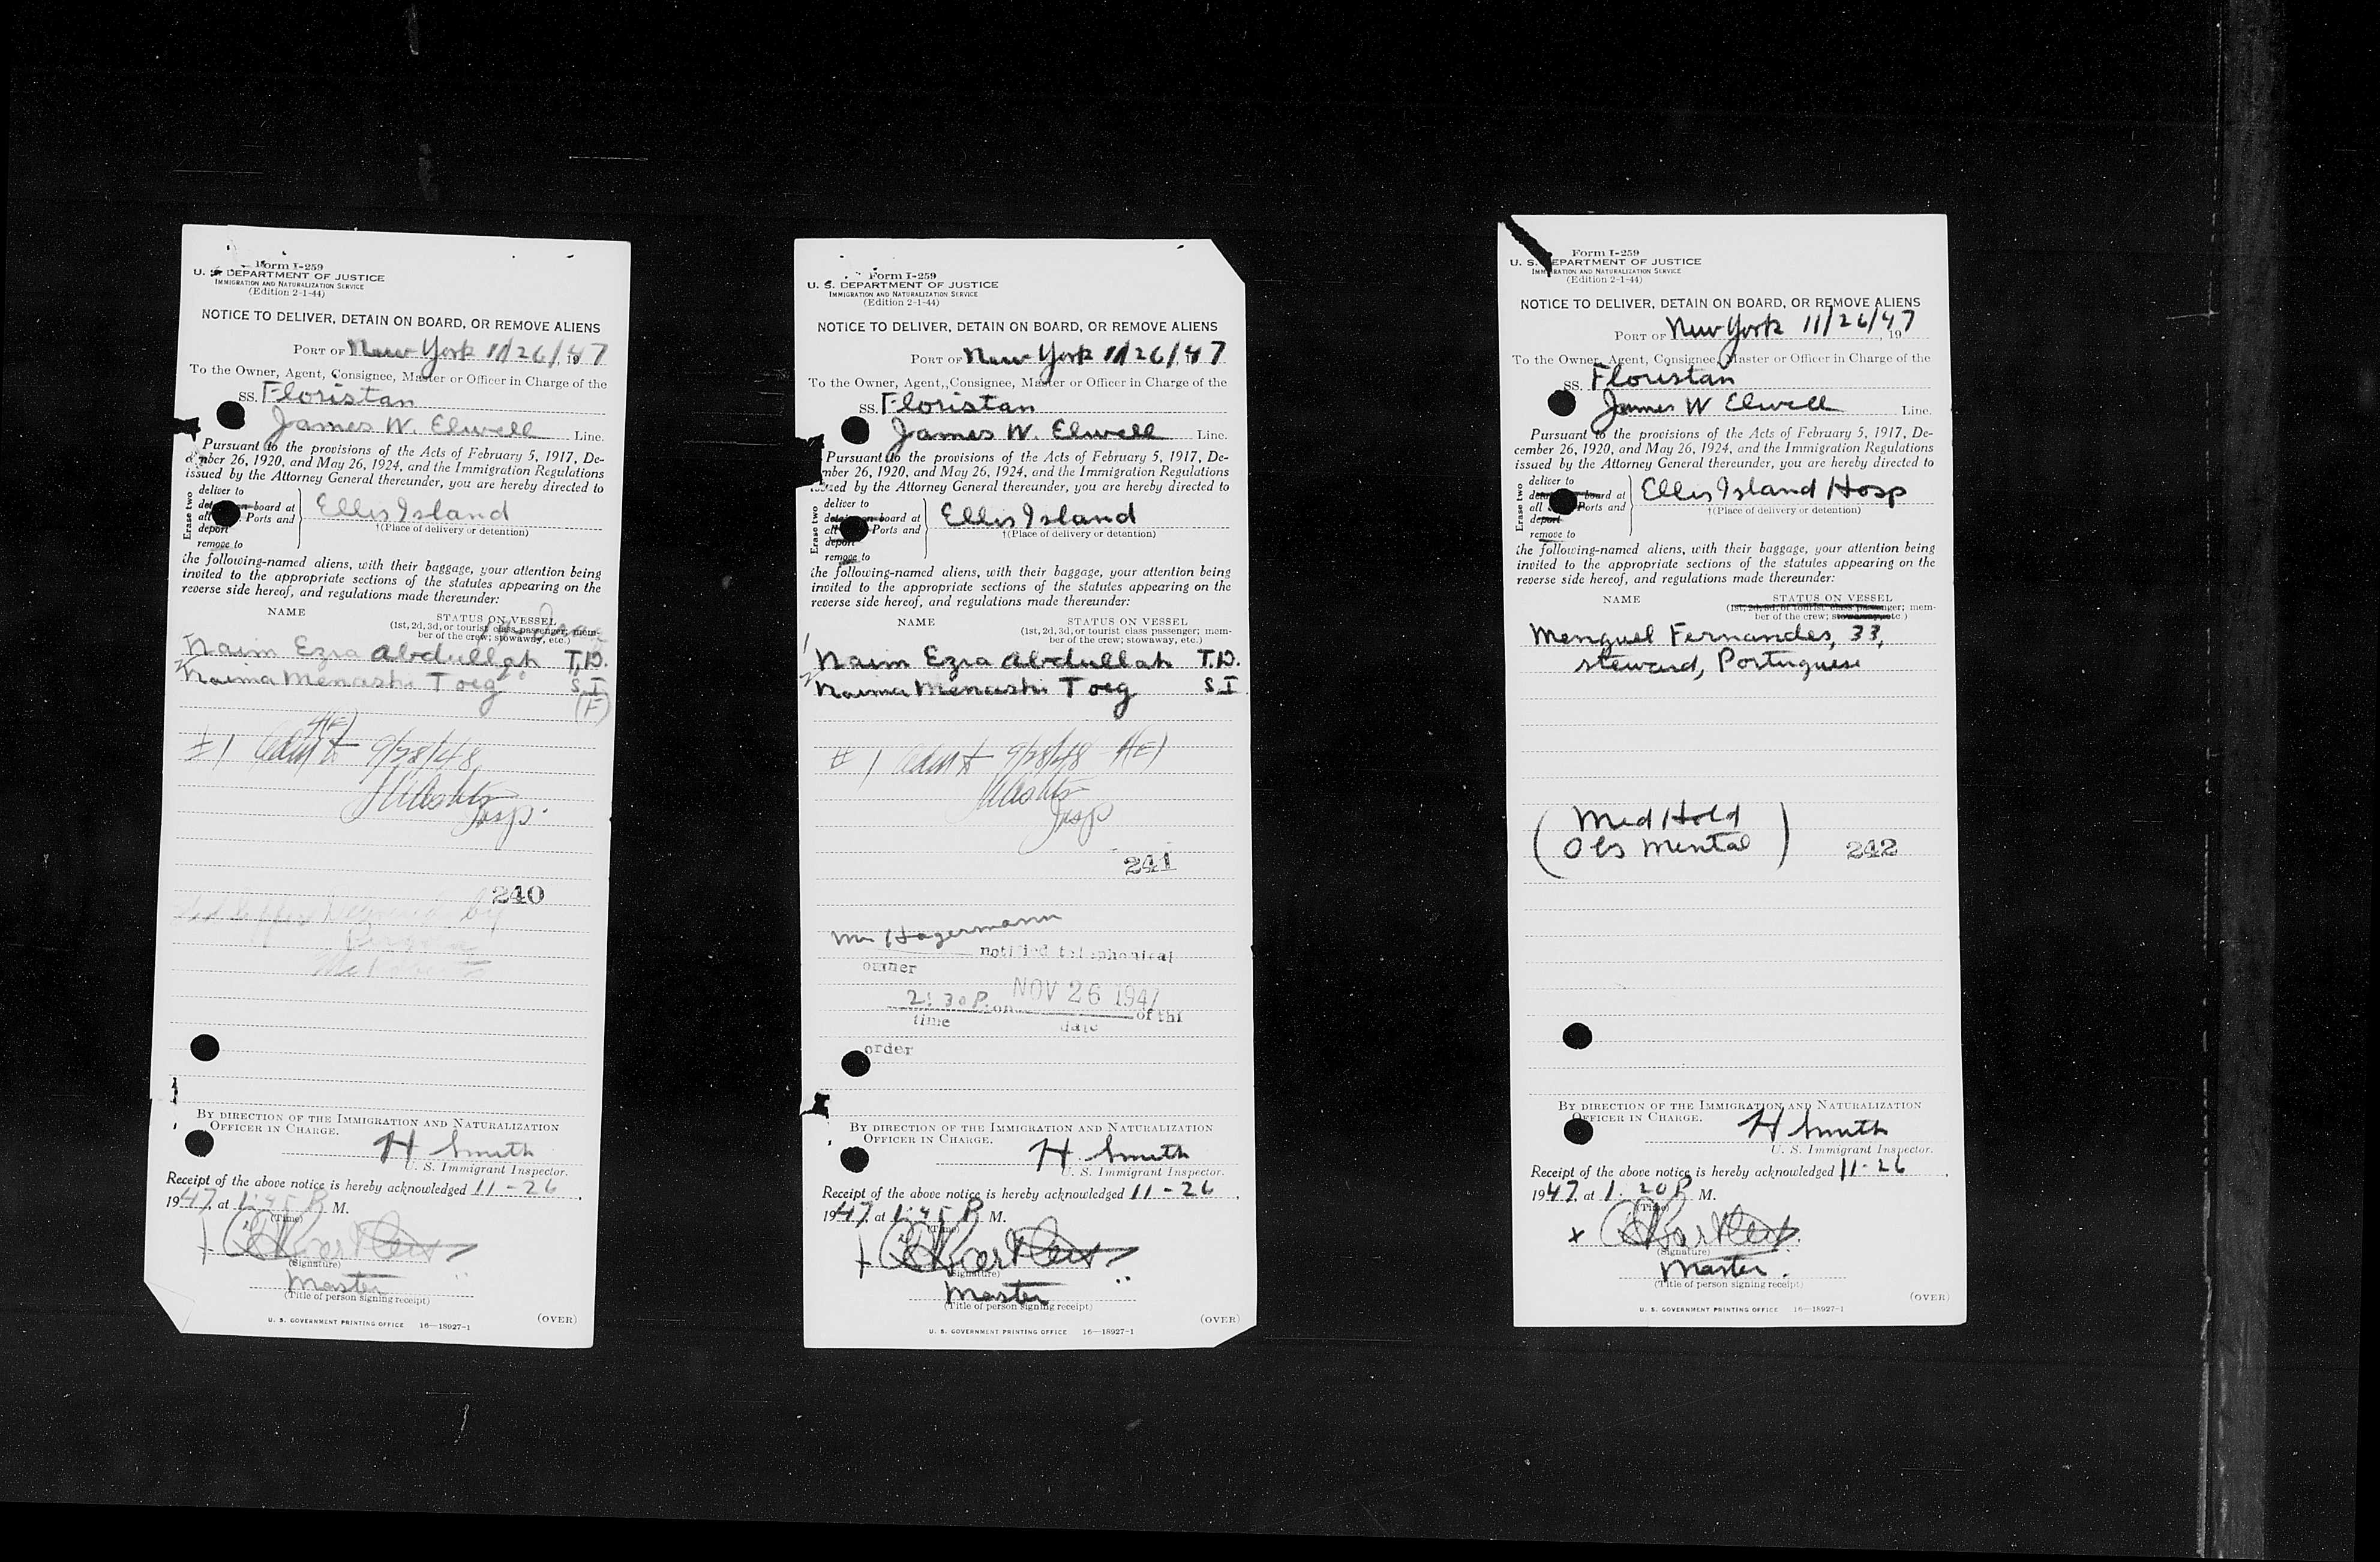 Form I-259
U. S. DEPARTMENT OF JUSTICE
IMMIGRATION AND NATURALIZATION SERVICE
(Edition 2-1-44)
NOTICE TO DELIVER, DETAIN ON BOARD, OR REMOVE ALIENS
PORT OF New York 11/26/, 1947
To the Owner, Agent, Consignee, Master or Officer in Charge of the
SS. Floristan
James W. Elwell Line.
Pursuant to the provisions of the Acts of February 5, 1917, De-
cember 26, 1920, and May 26, 1924, and the Immigration Regulations
issued by the Attorney General thereunder, you are hereby directed to
Erase two
deliver to
on board at
all Ports and
deport
remove to
Ellis Island
†(Place of delivery or detention)
the following-named aliens, with their baggage, your attention being
invited to the appropriate sections of the statutes appearing on the
reverse side hereof, and regulations made thereunder:
NAME STATUS ON VESSEL
(1st, 2d, 3d, or tourist class passenger; mem-
ber of the crew; stowaway, etc.)
Naim Ezra Abdullah T.D.
Naima Menashi Toeg S.I
(F)
#1 Adm't 4(E) 9/28/48
Insp.
240
by
BY DIRECTION OF THE IMMIGRATION AND NATURALIZATION
OFFICER IN CHARGE.
H Smith
U. S. Immigrant Inspector.
Receipt of the above notice is hereby acknowledged 11-26,
1947, at 1:45 P M.
(Time)
(Signature)
Master
(Title of person signing receipt)
(OVER)
U. S. GOVERNMENT PRINTING OFFICE 16—18927-1
Form I-259
U. S. DEPARTMENT OF JUSTICE
IMMIGRATION AND NATURALIZATION SERVICE
(Edition 2-1-44)
NOTICE TO DELIVER, DETAIN ON BOARD, OR REMOVE ALIENS
PORT OF New York 11/26/47
To the Owner, Agent, Consignee, Master or Officer in Charge of the
SS. Floristan
James W. Elwell Line.
Pursuant to the provisions of the Acts of February 5, 1917, De-
mber 26, 1920, and May 26, 1924, and the Immigration Regulations
issued by the Attorney General thereunder, you are hereby directed to
Erase two
deliver to
detain on board at
all Ports and
deport
remove to
Ellis Island
†(Place of delivery or detention)
the following-named aliens, with their baggage, your attention being
invited to the appropriate sections of the statutes appearing on the
reverse side hereof, and regulations made thereunder:
NAME STATUS ON VESSEL
(1st, 2d, 3d, or tourist class passenger; mem-
ber of the crew; stowaway, etc.)
1 Naim Ezra Abdullah T.D.
2 Naima Menashi Toeg S.I
#1 Adm't 9/28/48 4(E)
Insp
241
Mr Hagermann
notified telephonical
owner
2:30 P. on NOV 26 1947 of thi
time date
order
BY DIRECTION OF THE IMMIGRATION AND NATURALIZATION
OFFICER IN CHARGE.
H Smith
U. S. Immigrant Inspector.
Receipt of the above notice is hereby acknowledged 11-26,
1947, at 1:45 P M.
(Time)
(Signature)
Master
(Title of person signing receipt)
(OVER)
U. S. GOVERNMENT PRINTING OFFICE 16—18927-1
Form I-259
U. S. DEPARTMENT OF JUSTICE
IMMIGRATION AND NATURALIZATION SERVICE
(Edition 2-1-44)
NOTICE TO DELIVER, DETAIN ON BOARD, OR REMOVE ALIENS
PORT OF New York 11/26/47, 19
To the Owner, Agent, Consignee, Master or Officer in Charge of the
SS. Floristan
James W Elwell Line.
Pursuant to the provisions of the Acts of February 5, 1917, De-
cember 26, 1920, and May 26, 1924, and the Immigration Regulations
issued by the Attorney General thereunder, you are hereby directed to
Erase two
deliver to
detain on board at
all Ports and
deport
remove to
Ellis Island Hosp
†(Place of delivery or detention)
the following-named aliens, with their baggage, your attention being
invited to the appropriate sections of the statutes appearing on the
reverse side hereof, and regulations made thereunder:
NAME STATUS ON VESSEL
(1st, 2d, 3d, or tourist class passenger; mem-
ber of the crew; stowaway, etc.)
Menguel Fernandes, 33,
steward, Portuguese
(Med Hold
Obs Mental)
242
BY DIRECTION OF THE IMMIGRATION AND NATURALIZATION
OFFICER IN CHARGE.
H Smith
U. S. Immigrant Inspector.
Receipt of the above notice is hereby acknowledged 11-26,
1947, at 1:20 P M.
(Time)
x
(Signature)
Master.
(Title of person signing receipt)
(OVER)
U. S. GOVERNMENT PRINTING OFFICE 16—18927-1